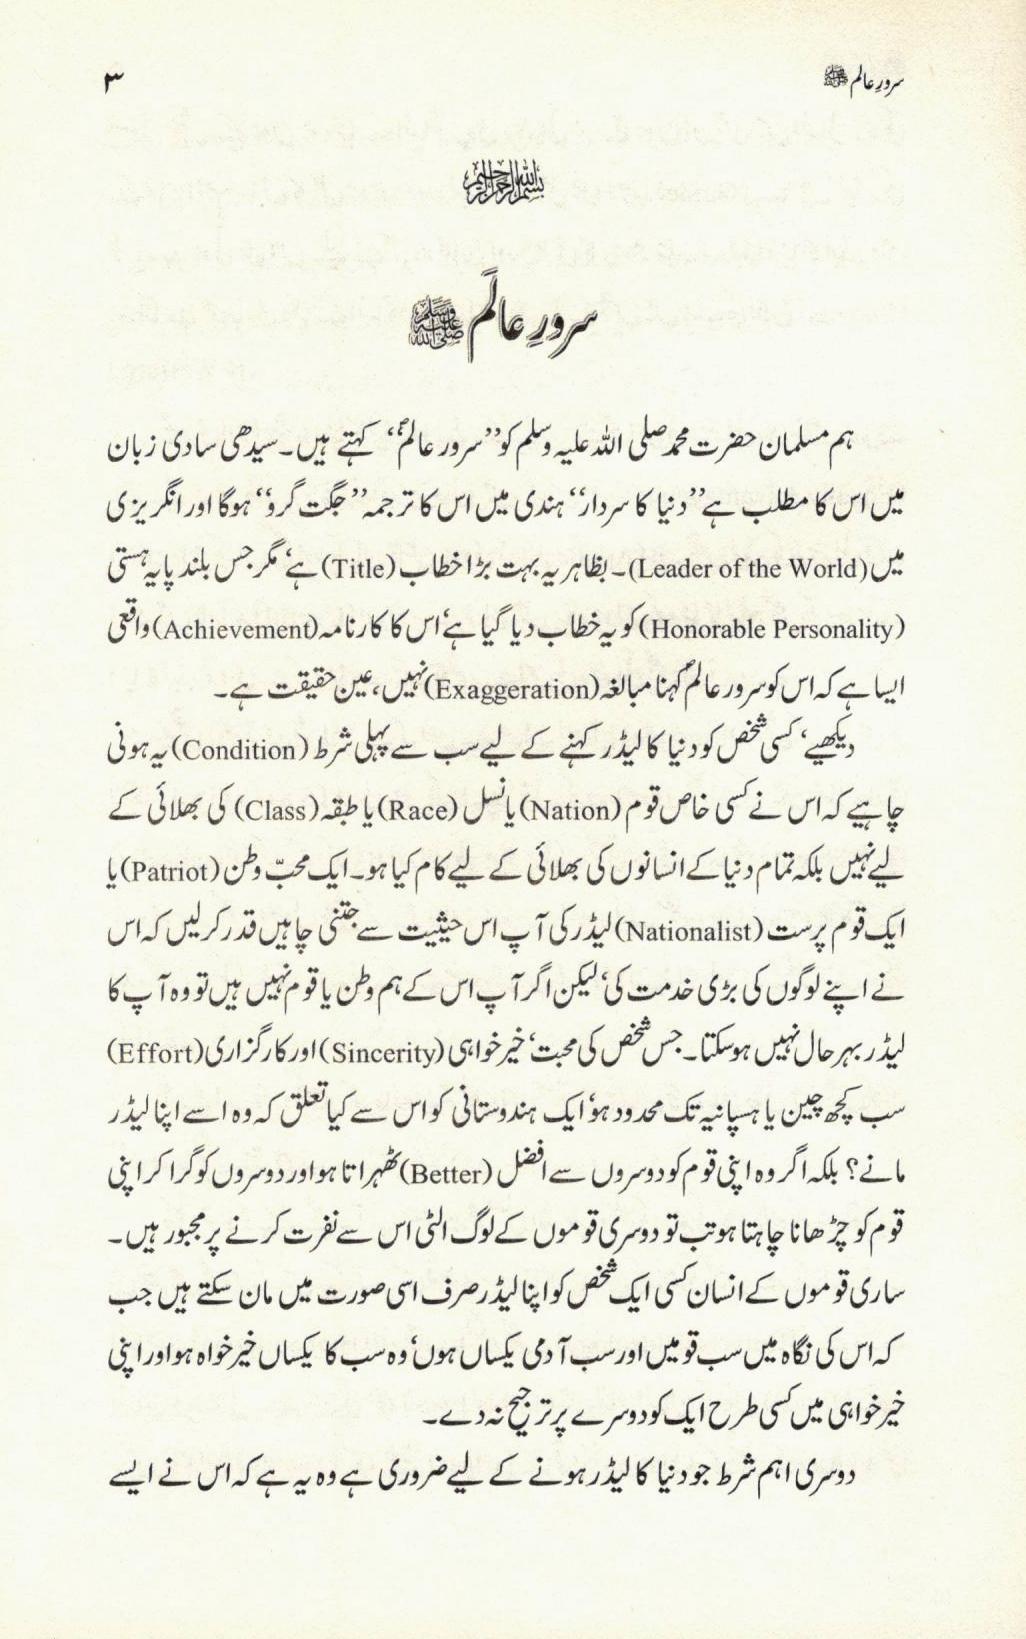 سرورِ عالم ﷺ ۳
﷽
سرورِ عالَم ﷺ
ہم مسلمان حضرت محمد صلی اللہ علیہ وسلم کو ’’سرور عالمؐ‘‘ کہتے ہیں۔ سیدھی سادی زبان
میں اس کا مطلب ہے ’’دنیا کا سردار‘‘ ہندی میں اس کا ترجمہ ’’جگت گرو‘‘ ہوگا اور انگریزی
میں (Leader of the World)۔ بظاہر یہ بہت بڑا خطاب (Title) ہے‘ مگر جس بلند پایہ ہستی
(Honorable Personality) کو یہ خطاب دیا گیا ہے‘ اس کا کارنامہ (Achievement) واقعی
ایسا ہے کہ اس کو سرور عالمؐ کہنا مبالغہ (Exaggeration) نہیں، عین حقیقت ہے۔
دیکھیے‘ کسی شخص کو دنیا کا لیڈر کہنے کے لیے سب سے پہلی شرط (Condition) یہ ہونی
چاہیے کہ اس نے کسی خاص قوم (Nation) یا نسل (Race) یا طبقہ (Class) کی بھلائی کے
لیے نہیں بلکہ تمام دنیا کے انسانوں کی بھلائی کے لیے کام کیا ہو۔ ایک محبّ وطن (Patriot) یا
ایک قوم پرست (Nationalist) لیڈر کی آپ اس حیثیت سے جتنی چاہیں قدر کرلیں کہ اس
نے اپنے لوگوں کی بڑی خدمت کی‘ لیکن اگر آپ اس کے ہم وطن یا قوم نہیں ہیں تو وہ آپ کا
لیڈر بہرحال نہیں ہوسکتا۔ جس شخص کی محبت‘ خیر خواہی (Sincerity) اور کارگزاری (Effort)
سب کچھ چین یا ہسپانیہ تک محدود ہو‘ ایک ہندوستانی کو اس سے کیا تعلق کہ وہ اسے اپنا لیڈر
مانے؟ بلکہ اگر وہ اپنی قوم کو دوسروں سے افضل (Better) ٹھہراتا ہو اور دوسروں کو گرا کر اپنی
قوم کو چڑھانا چاہتا ہو تب تو دوسری قوموں کے لوگ الٹی اس سے نفرت کرنے پر مجبور ہیں۔
ساری قوموں کے انسان کسی ایک شخص کو اپنا لیڈر صرف اسی صورت میں مان سکتے ہیں جب
کہ اس کی نگاہ میں سب قومیں اور سب آدمی یکساں ہوں‘ وہ سب کا یکساں خیر خواہ ہو اور اپنی
خیر خواہی میں کسی طرح ایک کو دوسرے پر ترجیح نہ دے۔
دوسری اہم شرط جو دنیا کا لیڈر ہونے کے لیے ضروری ہے وہ یہ ہے کہ اس نے ایسے